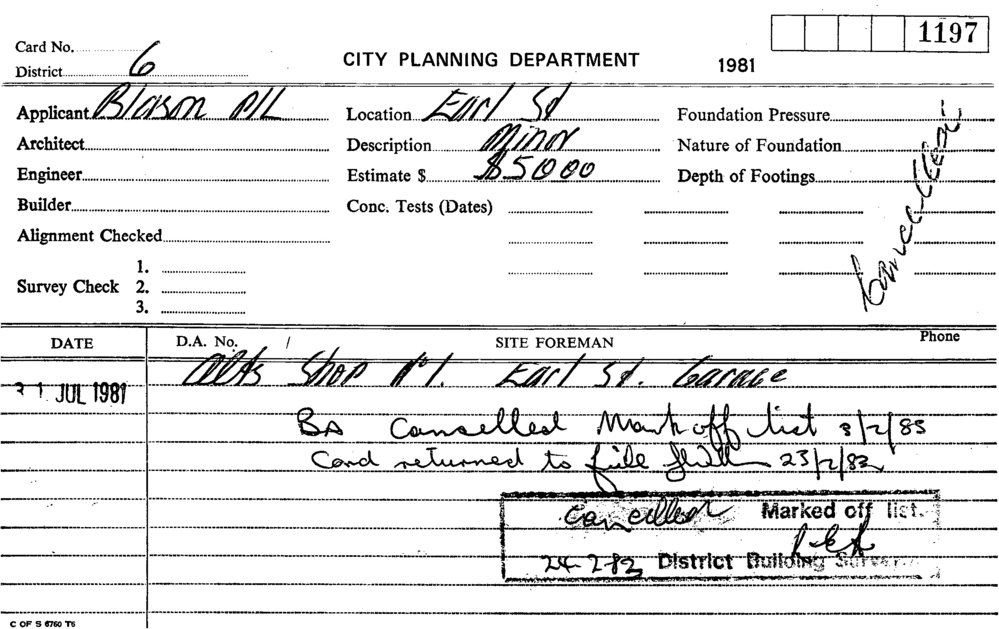 1197
Card No.
District 6
CITY PLANNING DEPARTMENT
1981
Applicant Blason P/L
Location Earl St
Foundation Pressure
Architect
Description Minor
Nature of Foundation
Engineer
Estimate $ $5000
Depth of Footings
Builder
Conc. Tests (Dates)
Alignment Checked
Cancelled
Survey Check 1.
2.
3.
DATE D.A. No. / SITE FOREMAN Phone
31 JUL 1981 Alts Shop N1. Earl St. Garage
BA Cancelled Mark off list 8/2/83
Card returned to file 23/2/82
Cancelled Marked off list.
24-2-82 District Building Surveyor
C OF S 6760 T5